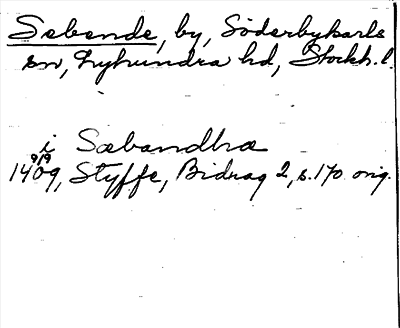 Sebende, by, Söderbykarls
sn, Lyhundra hd, Stockh. l.
i Sæbandhæ
1409 9/9, Styffe, Bidrag 2, s. 170 orig.